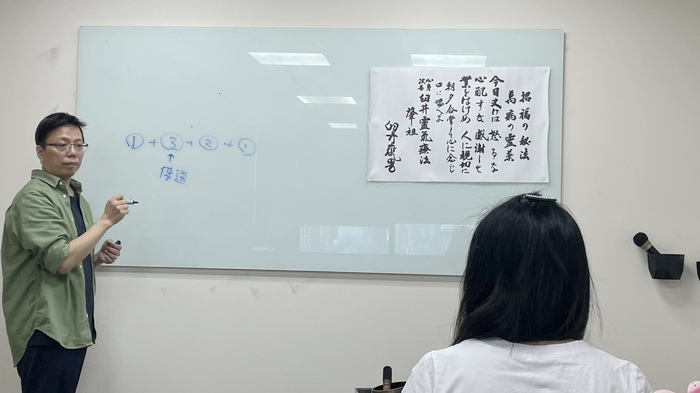 ① + ③ + ② +
↑
傳送
招福の秘法
萬病の霊薬
今日丈けは 怒るな
心配すな 感謝して
業をはげめ 人に親切に
朝夕合掌して心に念じ
口に唱へよ
心身改善 臼井靈氣療法
肇祖
臼井甕男